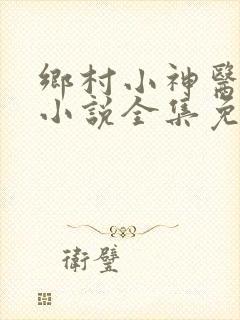 鄉村小神醫
小說全集免
衛璧